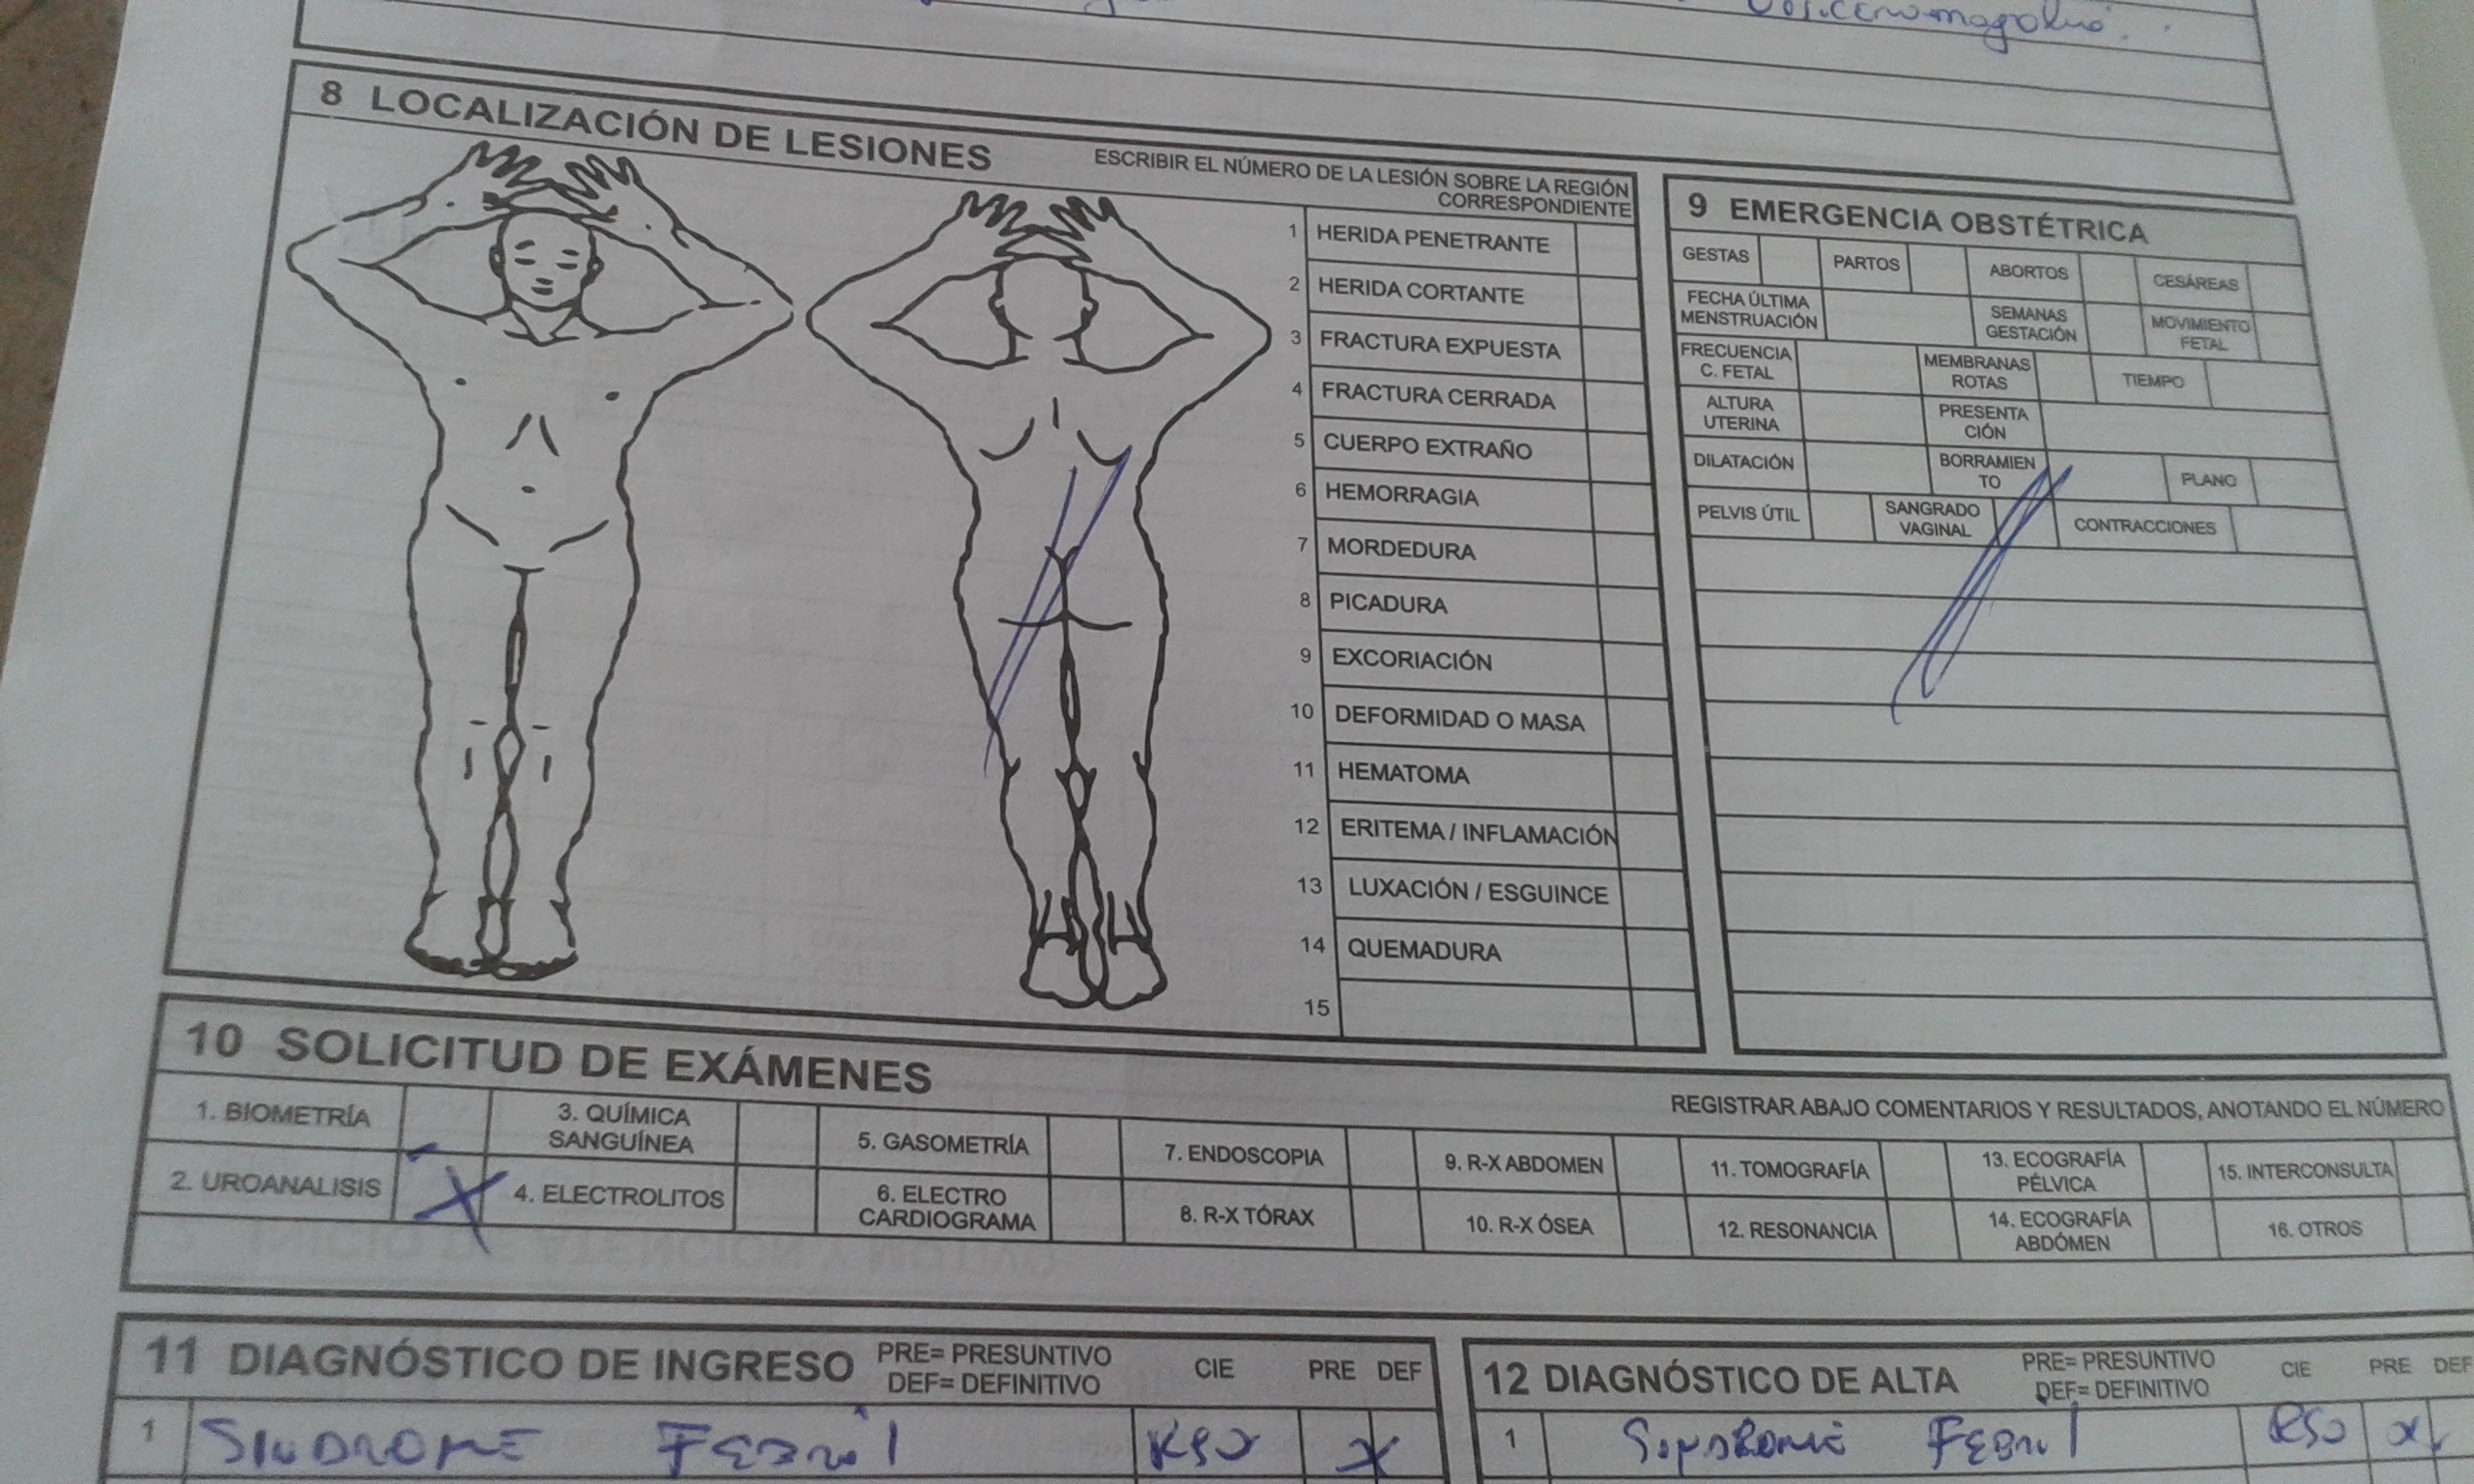 Visceromegalias.
8 LOCALIZACIÓN DE LESIONES
ESCRIBIR EL NÚMERO DE LA LESIÓN SOBRE LA REGIÓN
CORRESPONDIENTE
1 HERIDA PENETRANTE
2 HERIDA CORTANTE
3 FRACTURA EXPUESTA
4 FRACTURA CERRADA
5 CUERPO EXTRAÑO
6 HEMORRAGIA
7 MORDEDURA
8 PICADURA
9 EXCORIACIÓN
10 DEFORMIDAD O MASA
11 HEMATOMA
12 ERITEMA / INFLAMACIÓN
13 LUXACIÓN / ESGUINCE
14 QUEMADURA
15
9 EMERGENCIA OBSTÉTRICA
GESTAS PARTOS ABORTOS CESÁREAS
FECHA ÚLTIMA MENSTRUACIÓN SEMANAS GESTACIÓN MOVIMIENTO FETAL
FRECUENCIA C. FETAL MEMBRANAS ROTAS TIEMPO
ALTURA UTERINA PRESENTA CIÓN
DILATACIÓN BORRAMIEN TO PLANO
PELVIS ÚTIL SANGRADO VAGINAL CONTRACCIONES
10 SOLICITUD DE EXÁMENES
REGISTRAR ABAJO COMENTARIOS Y RESULTADOS, ANOTANDO EL NÚMERO
1. BIOMETRÍA 3. QUÍMICA SANGUÍNEA 5. GASOMETRÍA 7. ENDOSCOPIA 9. R-X ABDOMEN 11. TOMOGRAFÍA 13. ECOGRAFÍA PÉLVICA 15. INTERCONSULTA
2. UROANALISIS X 4. ELECTROLITOS 6. ELECTRO CARDIOGRAMA 8. R-X TÓRAX 10. R-X ÓSEA 12. RESONANCIA 14. ECOGRAFÍA ABDÓMEN 16. OTROS
11 DIAGNÓSTICO DE INGRESO PRE= PRESUNTIVO DEF= DEFINITIVO CIE PRE DEF
1 SINDROME FEBRIL R50 X
12 DIAGNÓSTICO DE ALTA PRE= PRESUNTIVO DEF= DEFINITIVO CIE PRE DEF
1 SINDROME FEBRIL R50 X